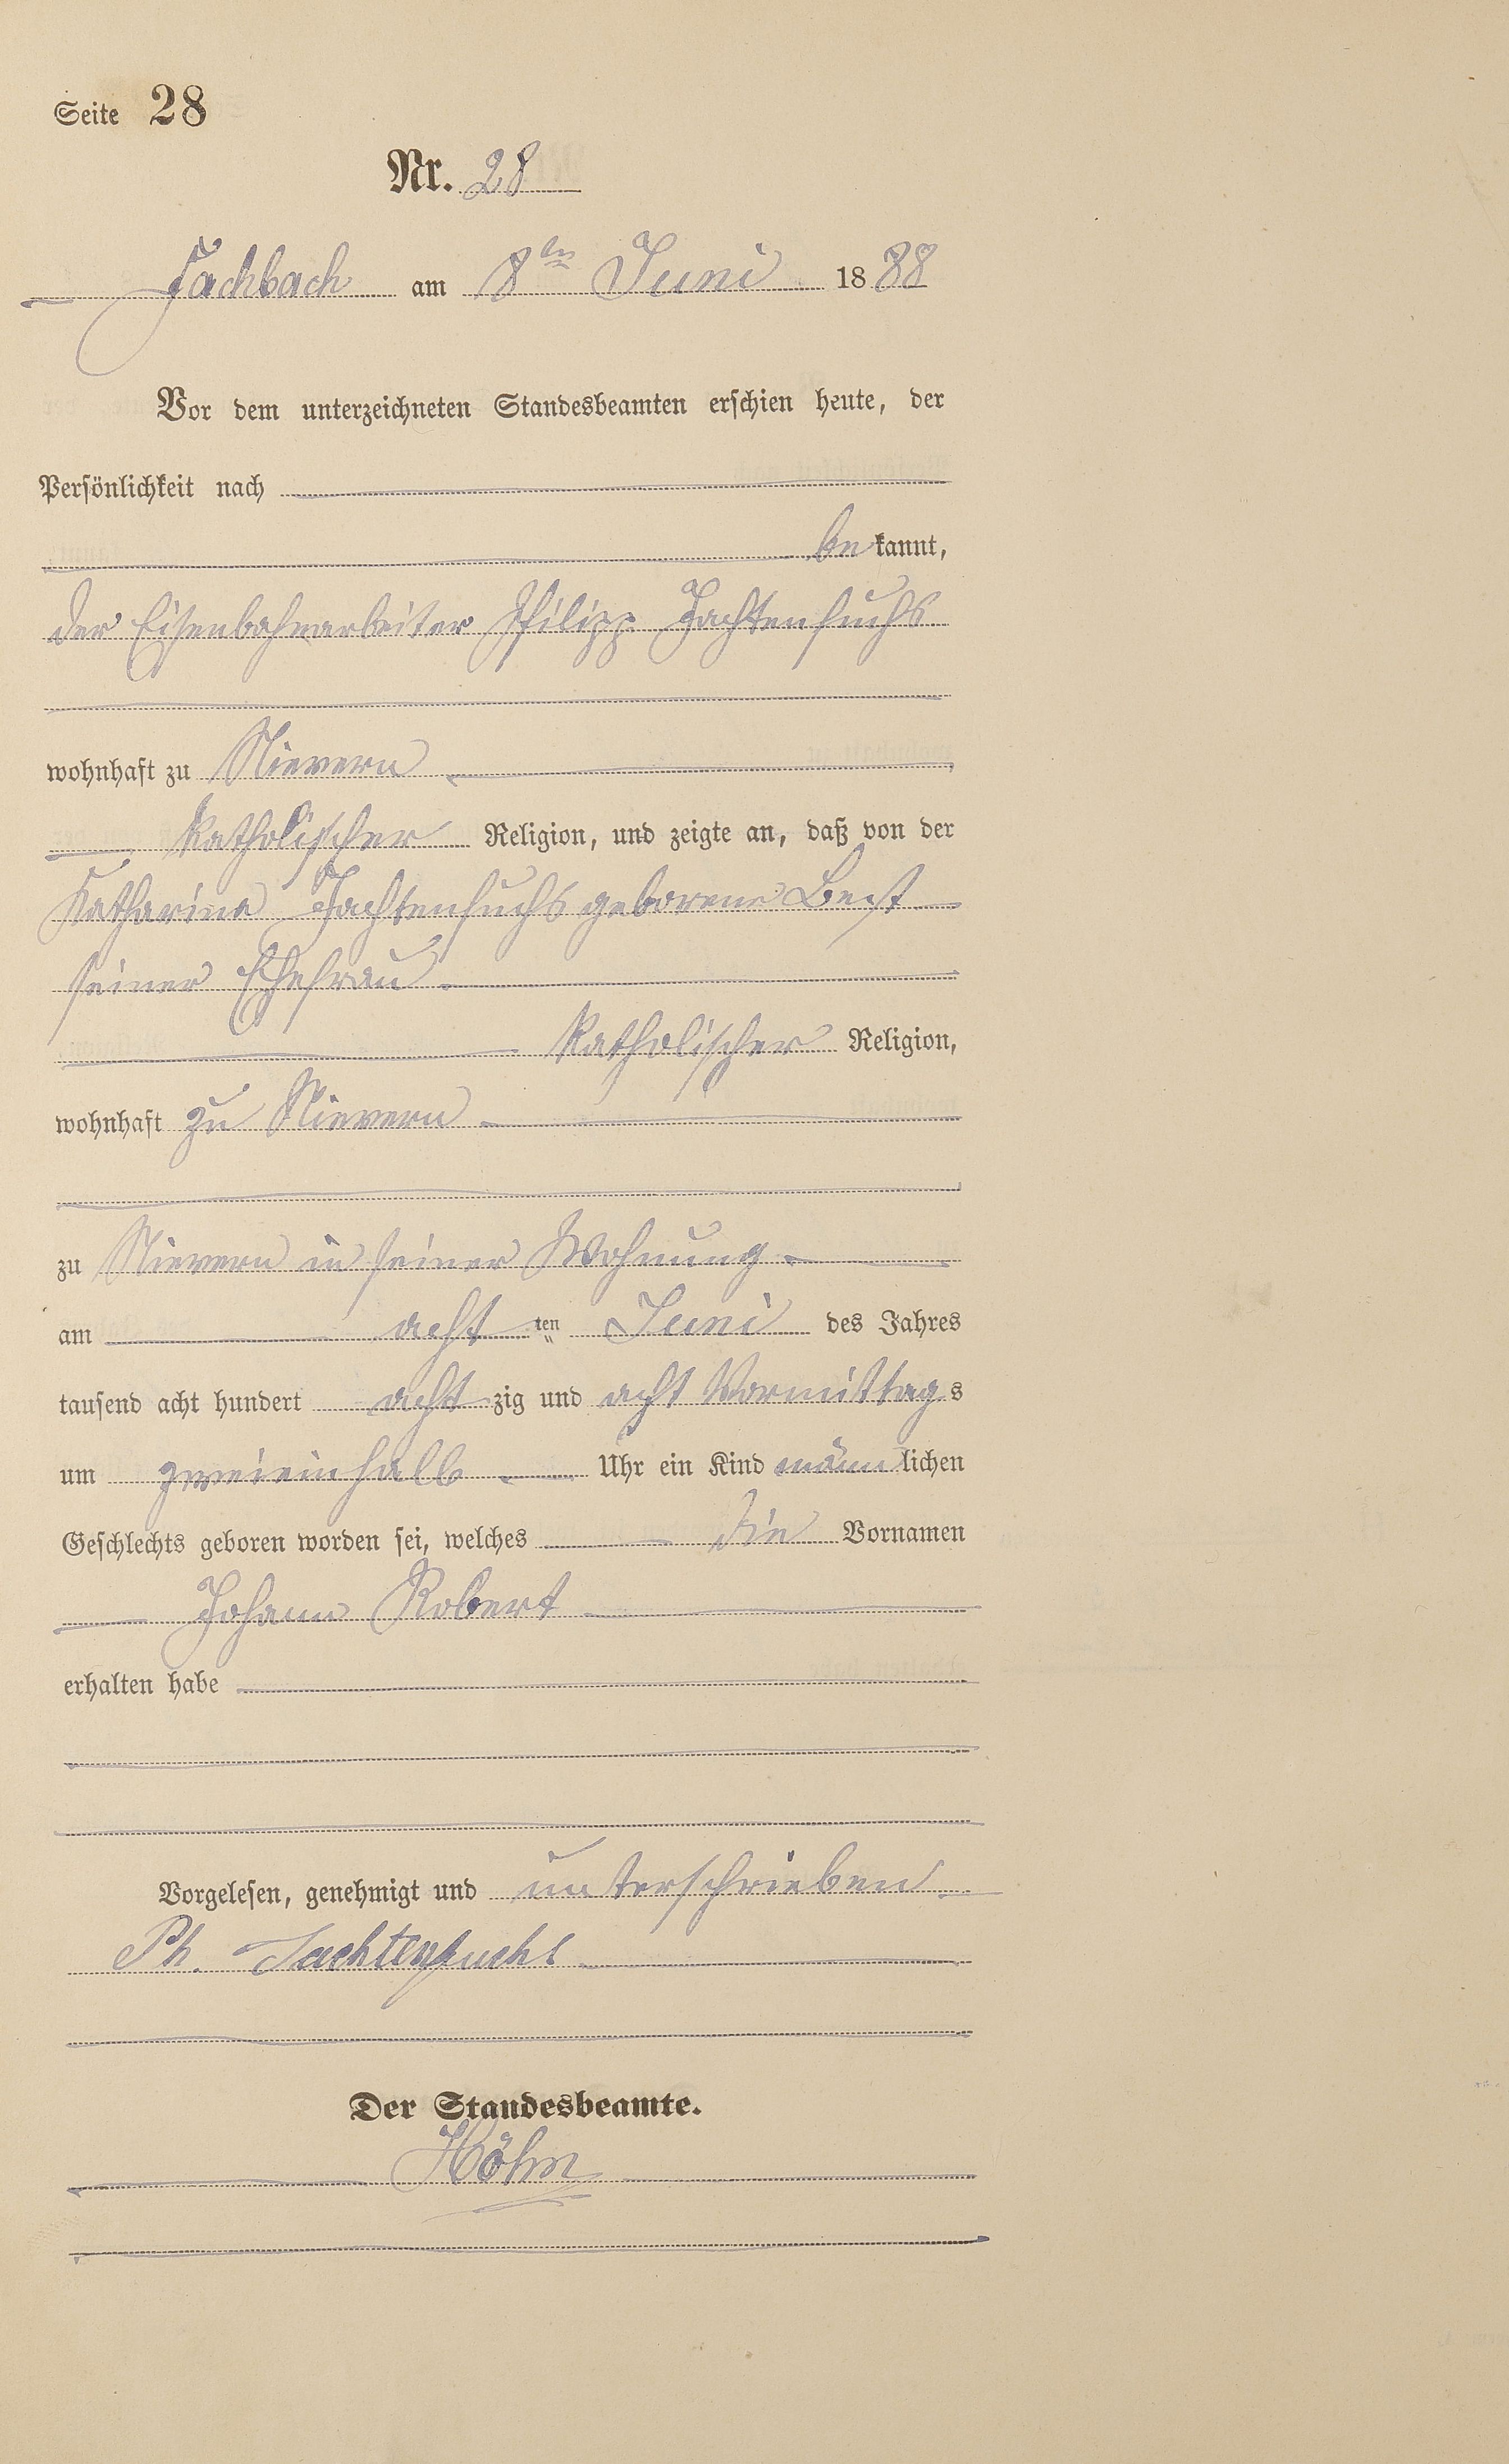 Seite 28
Nr. 28
Fachbach am 8ten Juni 1888
Vor dem unterzeichneten Standesbeamten erschien heute, der
Persönlichkeit nach
bekannt,
der Eisenbahnarbeiter Philipp Jachtenfuchs
wohnhaft zu Nievern
katholischer Religion, und zeigte an, daß von der
Katharina Jachtenfuchs geborene Best
seiner Ehefrau
katholischer Religion,
wohnhaft zu Nievern
zu Nievern in seiner Wohnung
am acht ten Juni des Jahres
tausend acht hundert acht zig und acht Vormittags
um zweieinhalb Uhr ein Kind männlichen
Geschlechts geboren worden sei, welches die Vornamen
Johann Robert
erhalten habe
Vorgelesen, genehmigt und unterschrieben
Ph. Jachtenfuchs
Der Standesbeamte.
Höhn